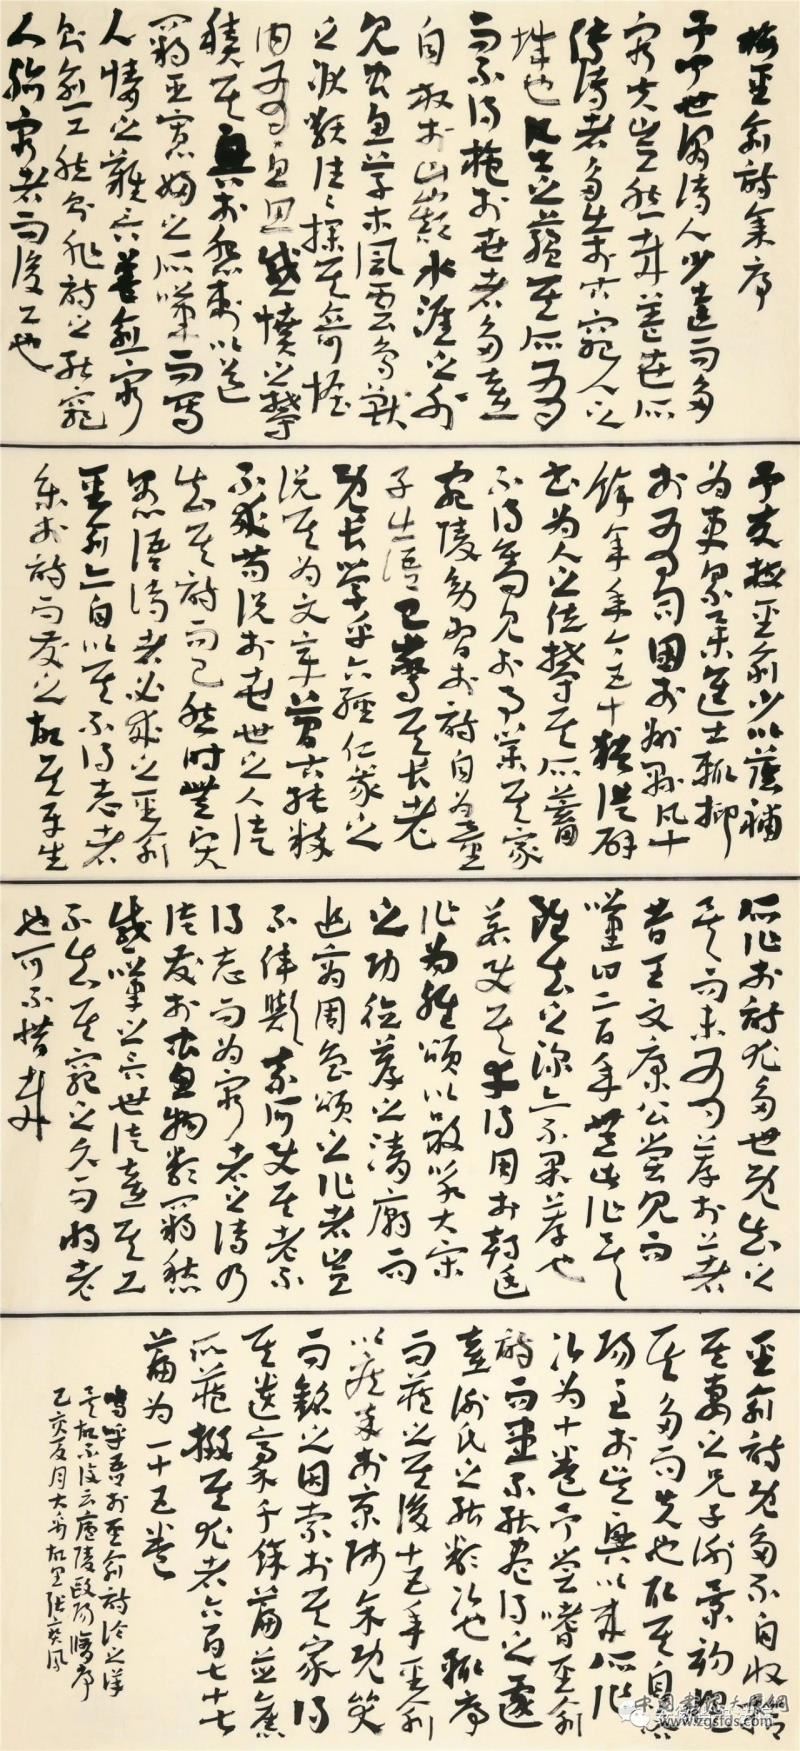 梅聖俞詩集序
予聞世謂詩人少達而多
窮夫豈然哉蓋世所
傳詩者多出於古窮人之
辭也凡士之蘊其所有
而不得施於世者多喜
自放於山巔水涯之外
見蟲魚草木風雲鳥獸
之狀類往往探其奇怪
內有憂思感憤之鬱
積其興於怨刺以道
羈臣寡婦之所嘆而寫
人情之難言蓋愈窮
則愈工然則非詩之能窮
人殆窮者而後工也
予友梅聖俞少以蔭補
為吏累舉進士輒抑
於有司困於州縣凡十
餘年年今五十猶從辟
書為人之佐鬱其所蓄
不得奮見於事業其家
宛陵幼習於詩自為童
子出語已驚其長老
既長學乎六經仁義之
說其為文章簡古純粹
不求苟說於世世之人徒
知其詩而已然時無賢
愚語詩者必求之聖俞
聖俞亦自以其不得志者
樂於詩而發之故其平生
所作於詩尤多世既知之
矣而未有薦於上者
昔王文康公嘗見而
嘆曰二百年無此作矣
雖知之深亦不果薦也
若使其幸得用於朝廷
作為雅頌以歌詠大宋
之功德薦之清廟而
追商周魯頌之作者豈
不偉歟奈何使其老不
得志而為窮者之詩乃
徒發於蟲魚物類羈愁
感嘆之言世徒喜其工
不知其窮之久而將老
也可不惜哉
聖俞詩既多不自收拾
其妻之兄子謝景初懼
其多而失也取其自洛
陽至於吳興以來所作
次為十卷予嘗嗜聖俞
詩而患不能盡得之遽
喜謝氏之能類次也輒序
而藏之其後十五年聖俞
以疾卒於京師余既哭
而銘之因索於其家得
其遺稿千餘篇並舊
所藏掇其尤者六百七十七
篇為一十五卷
嗚呼吾於聖俞詩論之詳
矣故不復云廬陵歐陽修序
己亥夏月大禹故里張風
中国书法大厦網
www.zgsfds.com